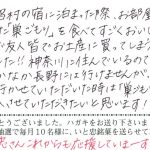 呂村の宿に泊まった際、お部屋
だ巣ごもり」を食べてすごくおいし
友人皆でお土産に買ってしま
た!!神奈川に住んでいるので
かなか長野には行けませんが、
行かせていただいた時は「巣ごも
入させていただきたいと思います!
とうございました。ハガキをお送り下さいま
抽選で毎月10名様に、いと忠銘菓を送らせて
忠さんこれからも応援していまーす